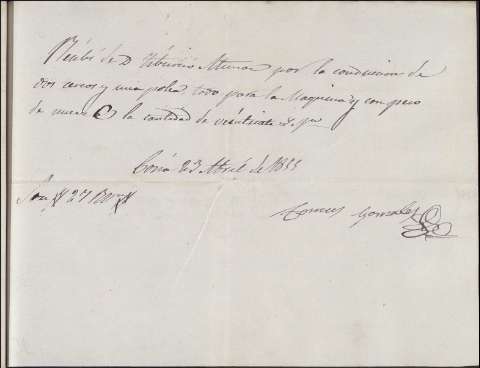 Recibí de D Tiburcio Alonso por la conduccion de
dos arcos y una polea, todo para la Maquina y con peso
de nueve @ la cantidad de veintisiete r.s vn
Coria 23 Abril de 1855
Son 27 R vn
Gonzalez